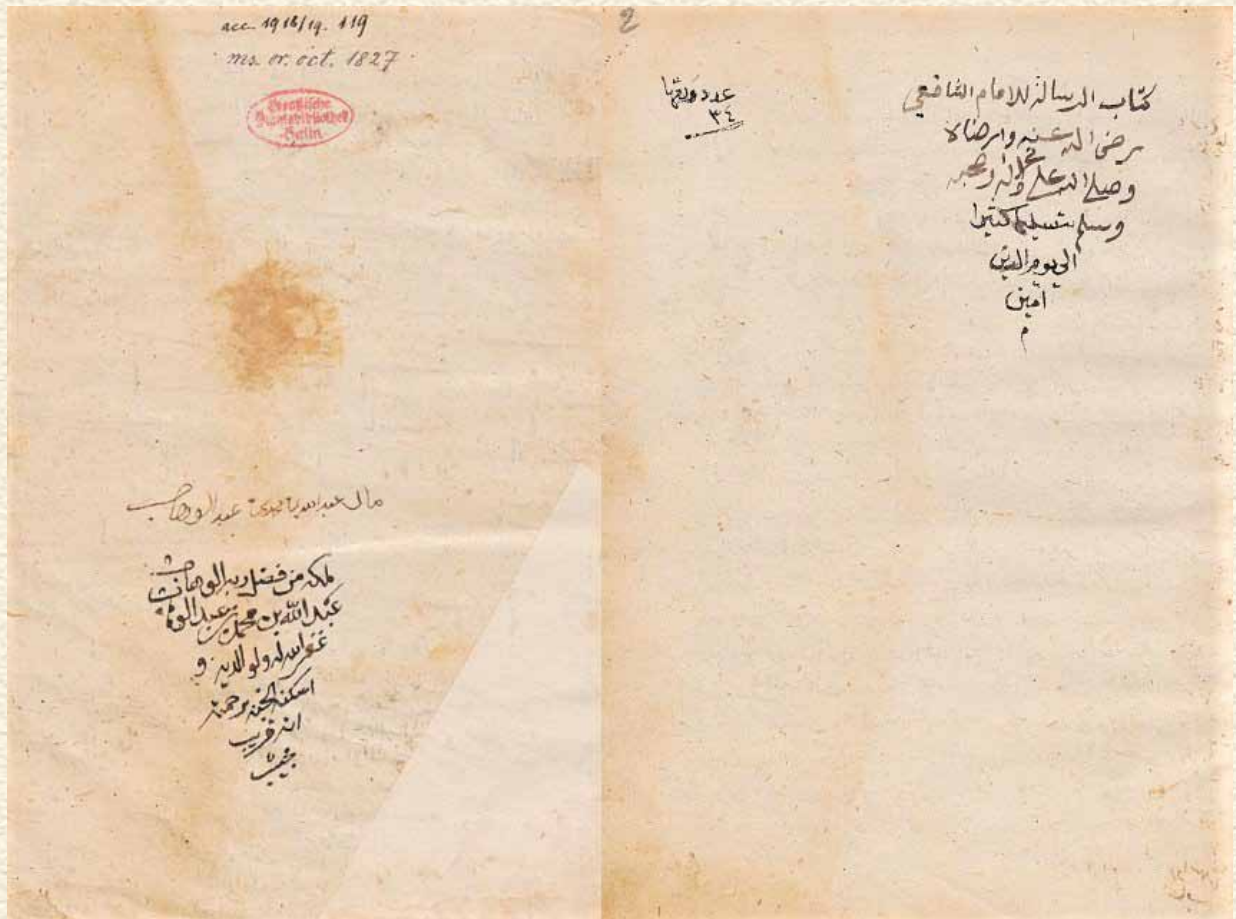 acc. 1918/19. 119
ms. or. oct. 1827
Preußische
Staatsbibliothek
Berlin
مال عبدالله بن محمد بن عبد الوهاب
ملكه من فضل ربه الوهاب
عبد الله بن محمد بن عبد الوهاب
غفر الله له ولوالديه و
اسكنه الجنة برحمته
انه قريب
مجيب
2
عدد ورقها
٣٤
كتاب الرسالة للامام الشافعي
رضى الله عنه وارضاه
وصلى الله على محمد وآله وصحبه
وسلم تسليما كثيرا
الى يوم الدين
امين
م